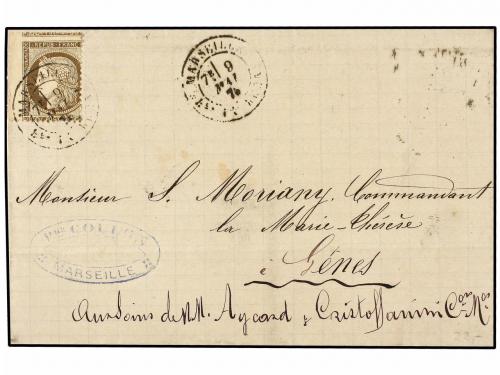 REPUB FRANC
MARSEILLE
9
MAI
Monsieur S. Moriany, Commandant
la Marie-Thérèse
à Gênes
COLLE
MARSEILLE
Aux soins de MM. Aycard & Cristoffanini